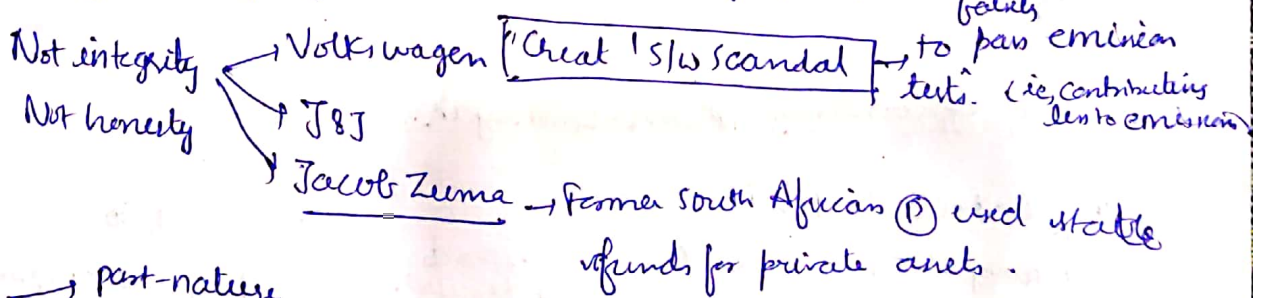 falsely
Not integrity → Volkswagen ['Cheat' S/W Scandal] → to pass emission
tests. (ie, contributing
less to emission)
Not honesty → J&J
→ Jacob Zuma → Former South African Ⓟ used state
funds for private assets.
→ past-nature